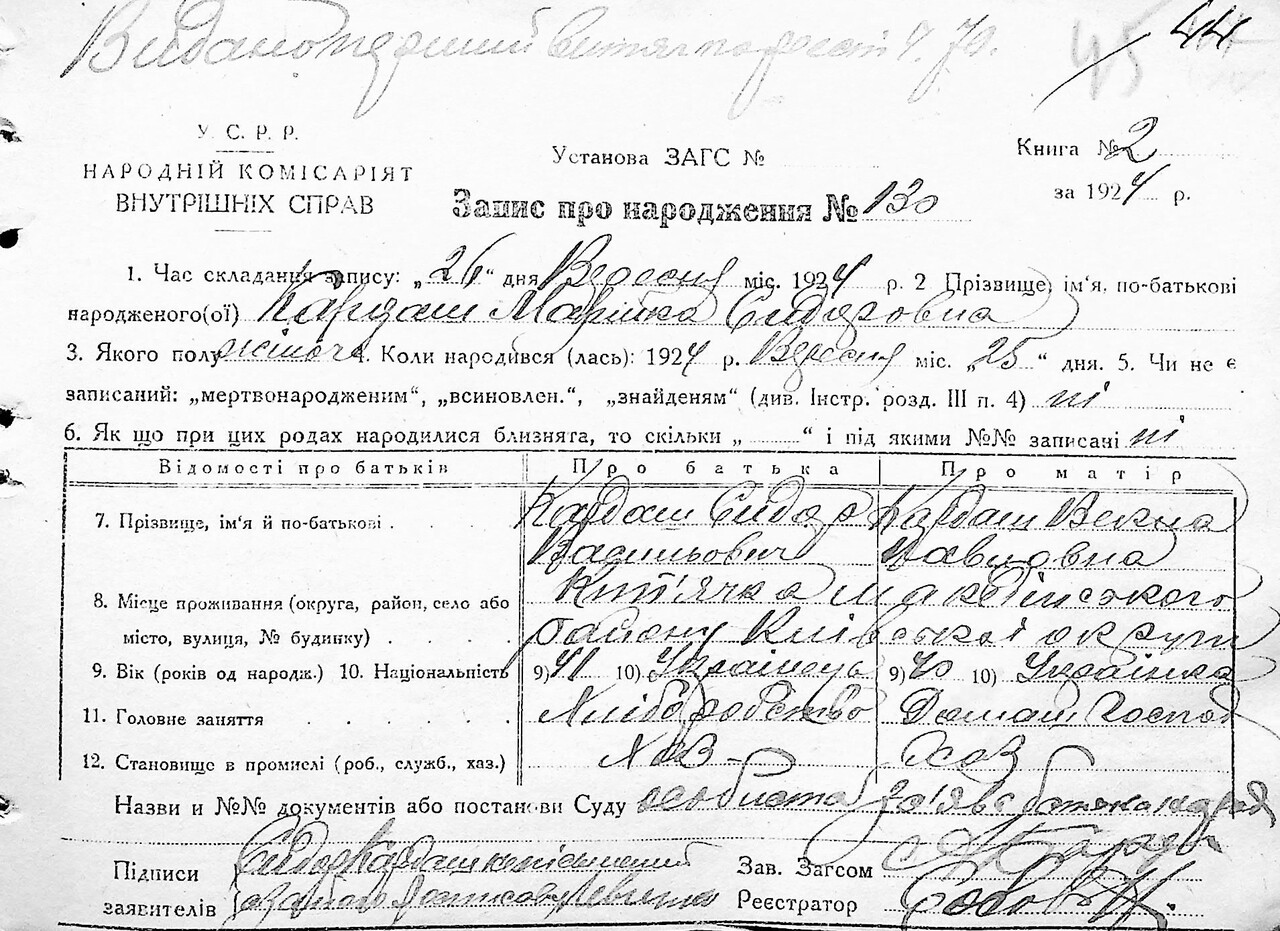 Видано перший витяг по 4. 70.
45 44
У. С. Р. Р.
НАРОДНІЙ КОМІСАРІЯТ
ВНУТРІШНІХ СПРАВ
Установа ЗАГС №
Запис про народження № 130
Книга № 2
за 1924 р.
1. Час складання запису: „26“ дня Вересня міс. 1924 р. 2 Прізвище, ім'я, по-батькові
народженого(ої) Кардаш Марійка Сидоровна
3. Якого полу жіноча 4. Коли народився (лась): 1924 р. Вересня міс. „25“ дня. 5. Чи не є
записаний: „мертвонародженим“, „всиновлен.“, „знайденям“ (див. Інстр. розд. III п. 4) ні
6. Як що при цих родах народилися близнята, то скільки „ “ і під якими №№ записані ні
Відомості про батьків Про батька Про матір
7. Прізвище, ім'я й по-батькові . Кардаш Сидор Кардаш Векла
Васильович Павловна
8. Місце проживання (округа, район, село або
місто, вулиця, № будинку) . . . . району Київської округи
9. Вік (років од народж.) 10. Національність 9) 41 10) Українець 9) 40 10) Українка
11. Головне заняття . . . . . . Хліборобство Домаш Господ
12. Становище в промислі (роб., служб., хаз.) Хоз Хоз
Назви и №№ документів або постанови Суду особиста заява батька
Підписи Сидор Кардаш неписьменний
заявителів
Зав. Загсом
Реєстратор